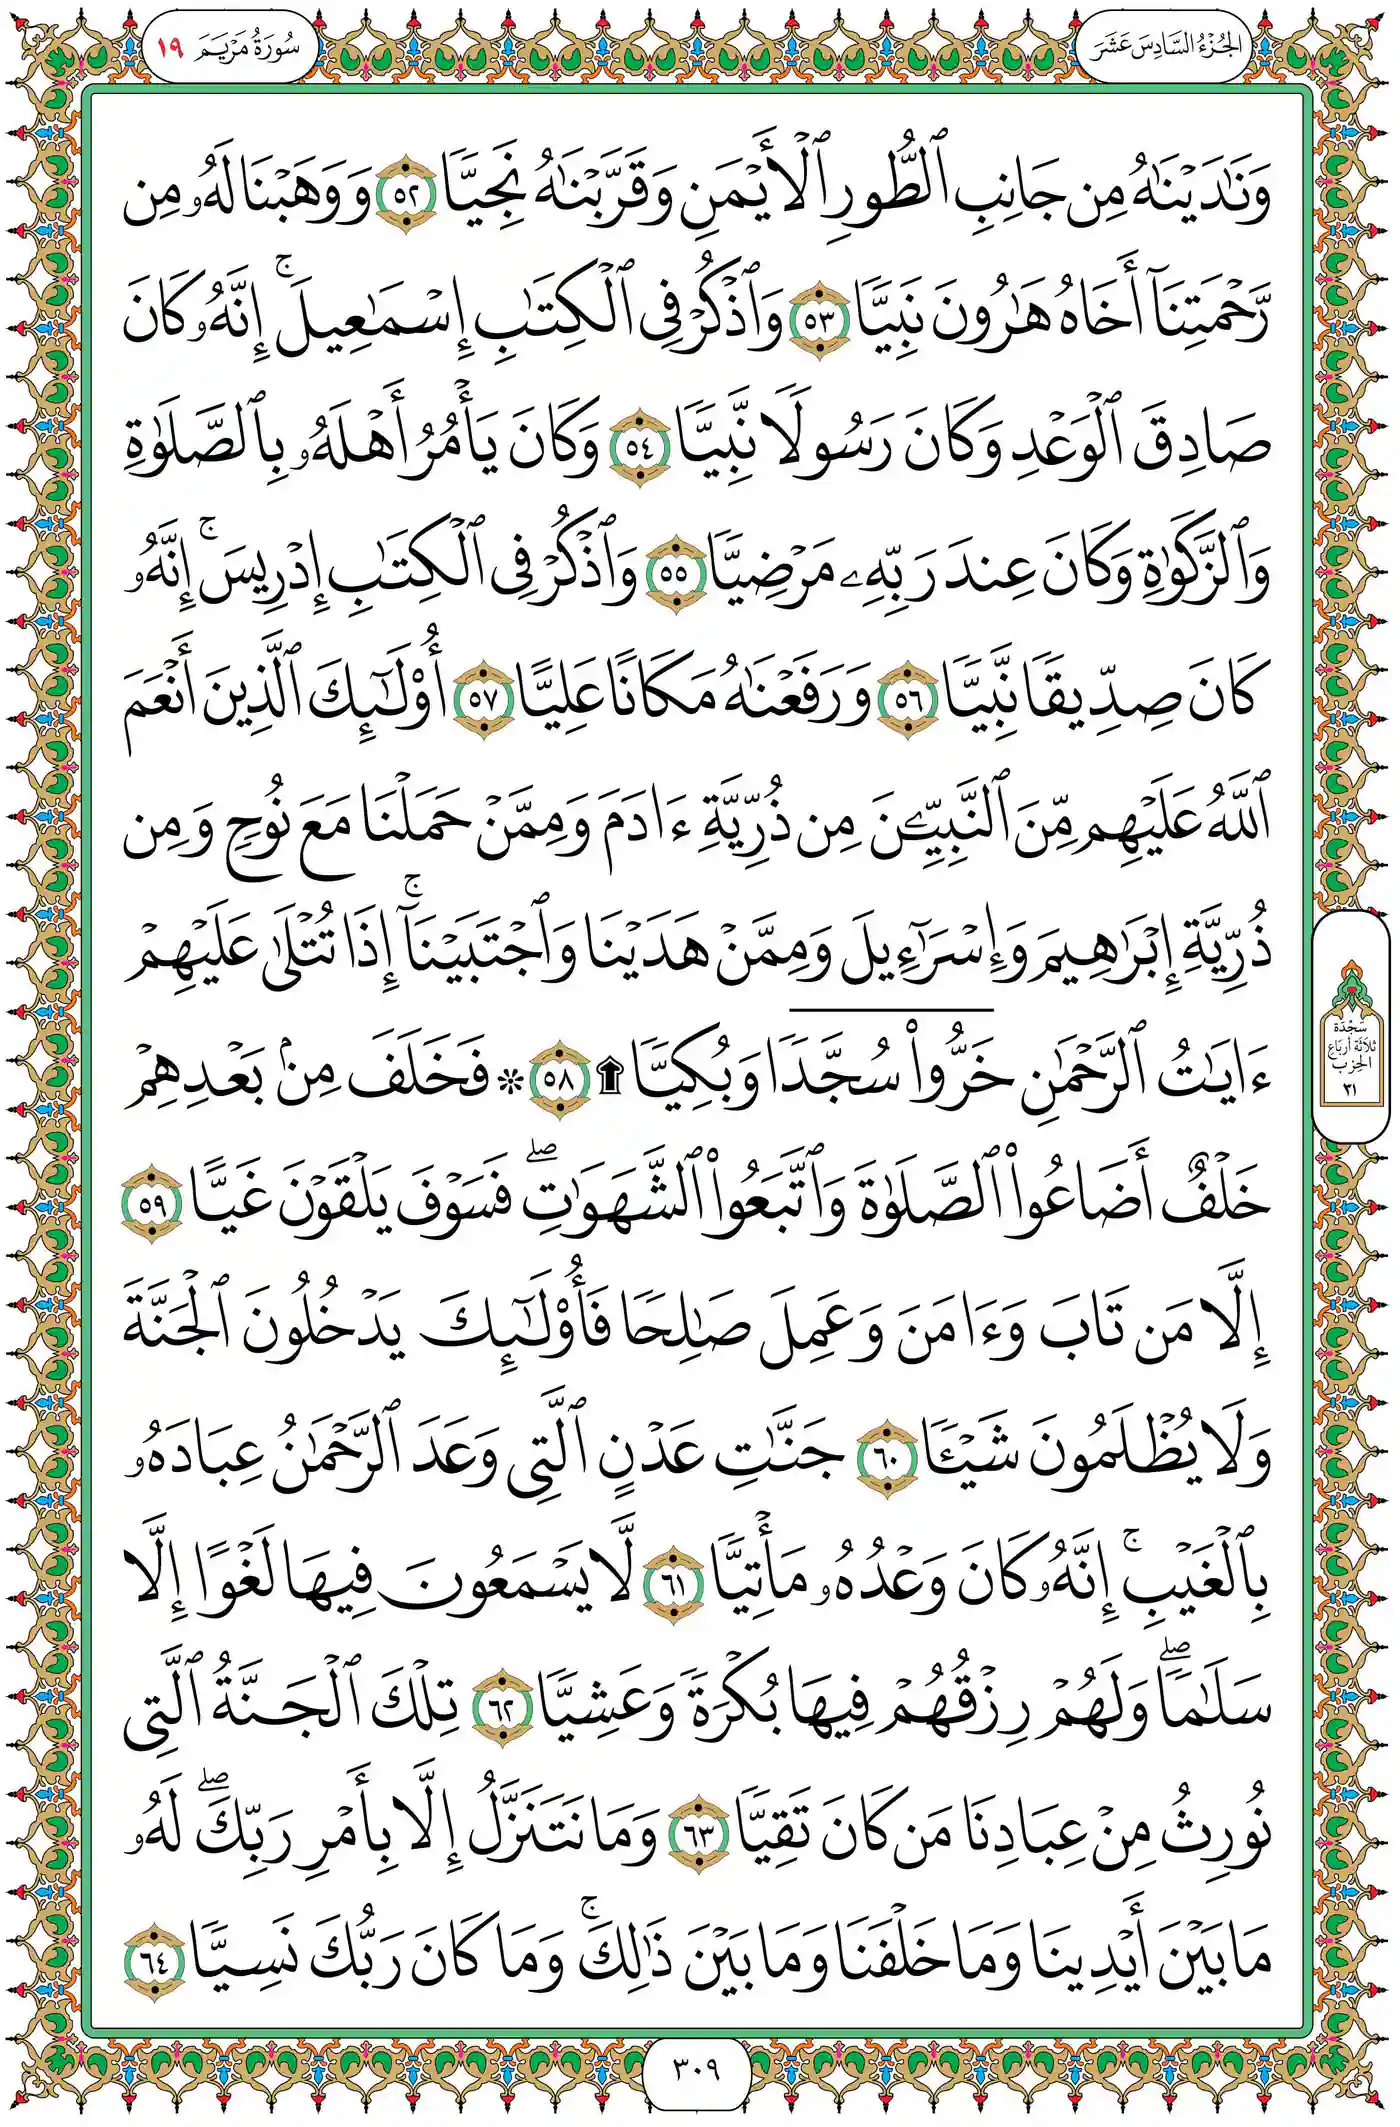 الجُزْءُ السَّادِسَ عَشَرَ
سُورَةُ مَرْيَمَ ١٩
وَنَٰدَيْنَٰهُ مِن جَانِبِ ٱلطُّورِ ٱلْأَيْمَنِ وَقَرَّبْنَٰهُ نَجِيًّا ٥٢ وَوَهَبْنَا لَهُۥ مِن
رَّحْمَتِنَآ أَخَاهُ هَٰرُونَ نَبِيًّا ٥٣ وَٱذْكُرْ فِى ٱلْكِتَٰبِ إِسْمَٰعِيلَ ۚ إِنَّهُۥ كَانَ
صَادِقَ ٱلْوَعْدِ وَكَانَ رَسُولًا نَّبِيًّا ٥٤ وَكَانَ يَأْمُرُ أَهْلَهُۥ بِٱلصَّلَوٰةِ
وَٱلزَّكَوٰةِ وَكَانَ عِندَ رَبِّهِۦ مَرْضِيًّا ٥٥ وَٱذْكُرْ فِى ٱلْكِتَٰبِ إِدْرِيسَ ۚ إِنَّهُۥ
كَانَ صِدِّيقًا نَّبِيًّا ٥٦ وَرَفَعْنَٰهُ مَكَانًا عَلِيًّا ٥٧ أُو۟لَٰٓئِكَ ٱلَّذِينَ أَنْعَمَ
ٱللَّهُ عَلَيْهِم مِّنَ ٱلنَّبِيِّۦنَ مِن ذُرِّيَّةِ ءَادَمَ وَمِمَّنْ حَمَلْنَا مَعَ نُوحٍ وَمِن
ذُرِّيَّةِ إِبْرَٰهِيمَ وَإِسْرَٰٓءِيلَ وَمِمَّنْ هَدَيْنَا وَٱجْتَبَيْنَآ ۚ إِذَا تُتْلَىٰ عَلَيْهِمْ
ءَايَٰتُ ٱلرَّحْمَٰنِ خَرُّوا۟ سُجَّدًا وَبُكِيًّا ۩ ٥٨ ۞ فَخَلَفَ مِنۢ بَعْدِهِمْ
خَلْفٌ أَضَاعُوا۟ ٱلصَّلَوٰةَ وَٱتَّبَعُوا۟ ٱلشَّهَوَٰتِ ۖ فَسَوْفَ يَلْقَوْنَ غَيًّا ٥٩
إِلَّا مَن تَابَ وَءَامَنَ وَعَمِلَ صَٰلِحًا فَأُو۟لَٰٓئِكَ يَدْخُلُونَ ٱلْجَنَّةَ
وَلَا يُظْلَمُونَ شَيْـًٔا ٦٠ جَنَّٰتِ عَدْنٍ ٱلَّتِى وَعَدَ ٱلرَّحْمَٰنُ عِبَادَهُۥ
بِٱلْغَيْبِ ۚ إِنَّهُۥ كَانَ وَعْدُهُۥ مَأْتِيًّا ٦١ لَّا يَسْمَعُونَ فِيهَا لَغْوًا إِلَّا
سَلَٰمًا ۖ وَلَهُمْ رِزْقُهُمْ فِيهَا بُكْرَةً وَعَشِيًّا ٦٢ تِلْكَ ٱلْجَنَّةُ ٱلَّتِى
نُورِثُ مِنْ عِبَادِنَا مَن كَانَ تَقِيًّا ٦٣ وَمَا نَتَنَزَّلُ إِلَّا بِأَمْرِ رَبِّكَ ۖ لَهُۥ
مَا بَيْنَ أَيْدِينَا وَمَا خَلْفَنَا وَمَا بَيْنَ ذَٰلِكَ ۚ وَمَا كَانَ رَبُّكَ نَسِيًّا ٦٤
سَجْدَة
ثَلَاثَة أَربَاع
الحِزب
٣١
٣٠٩